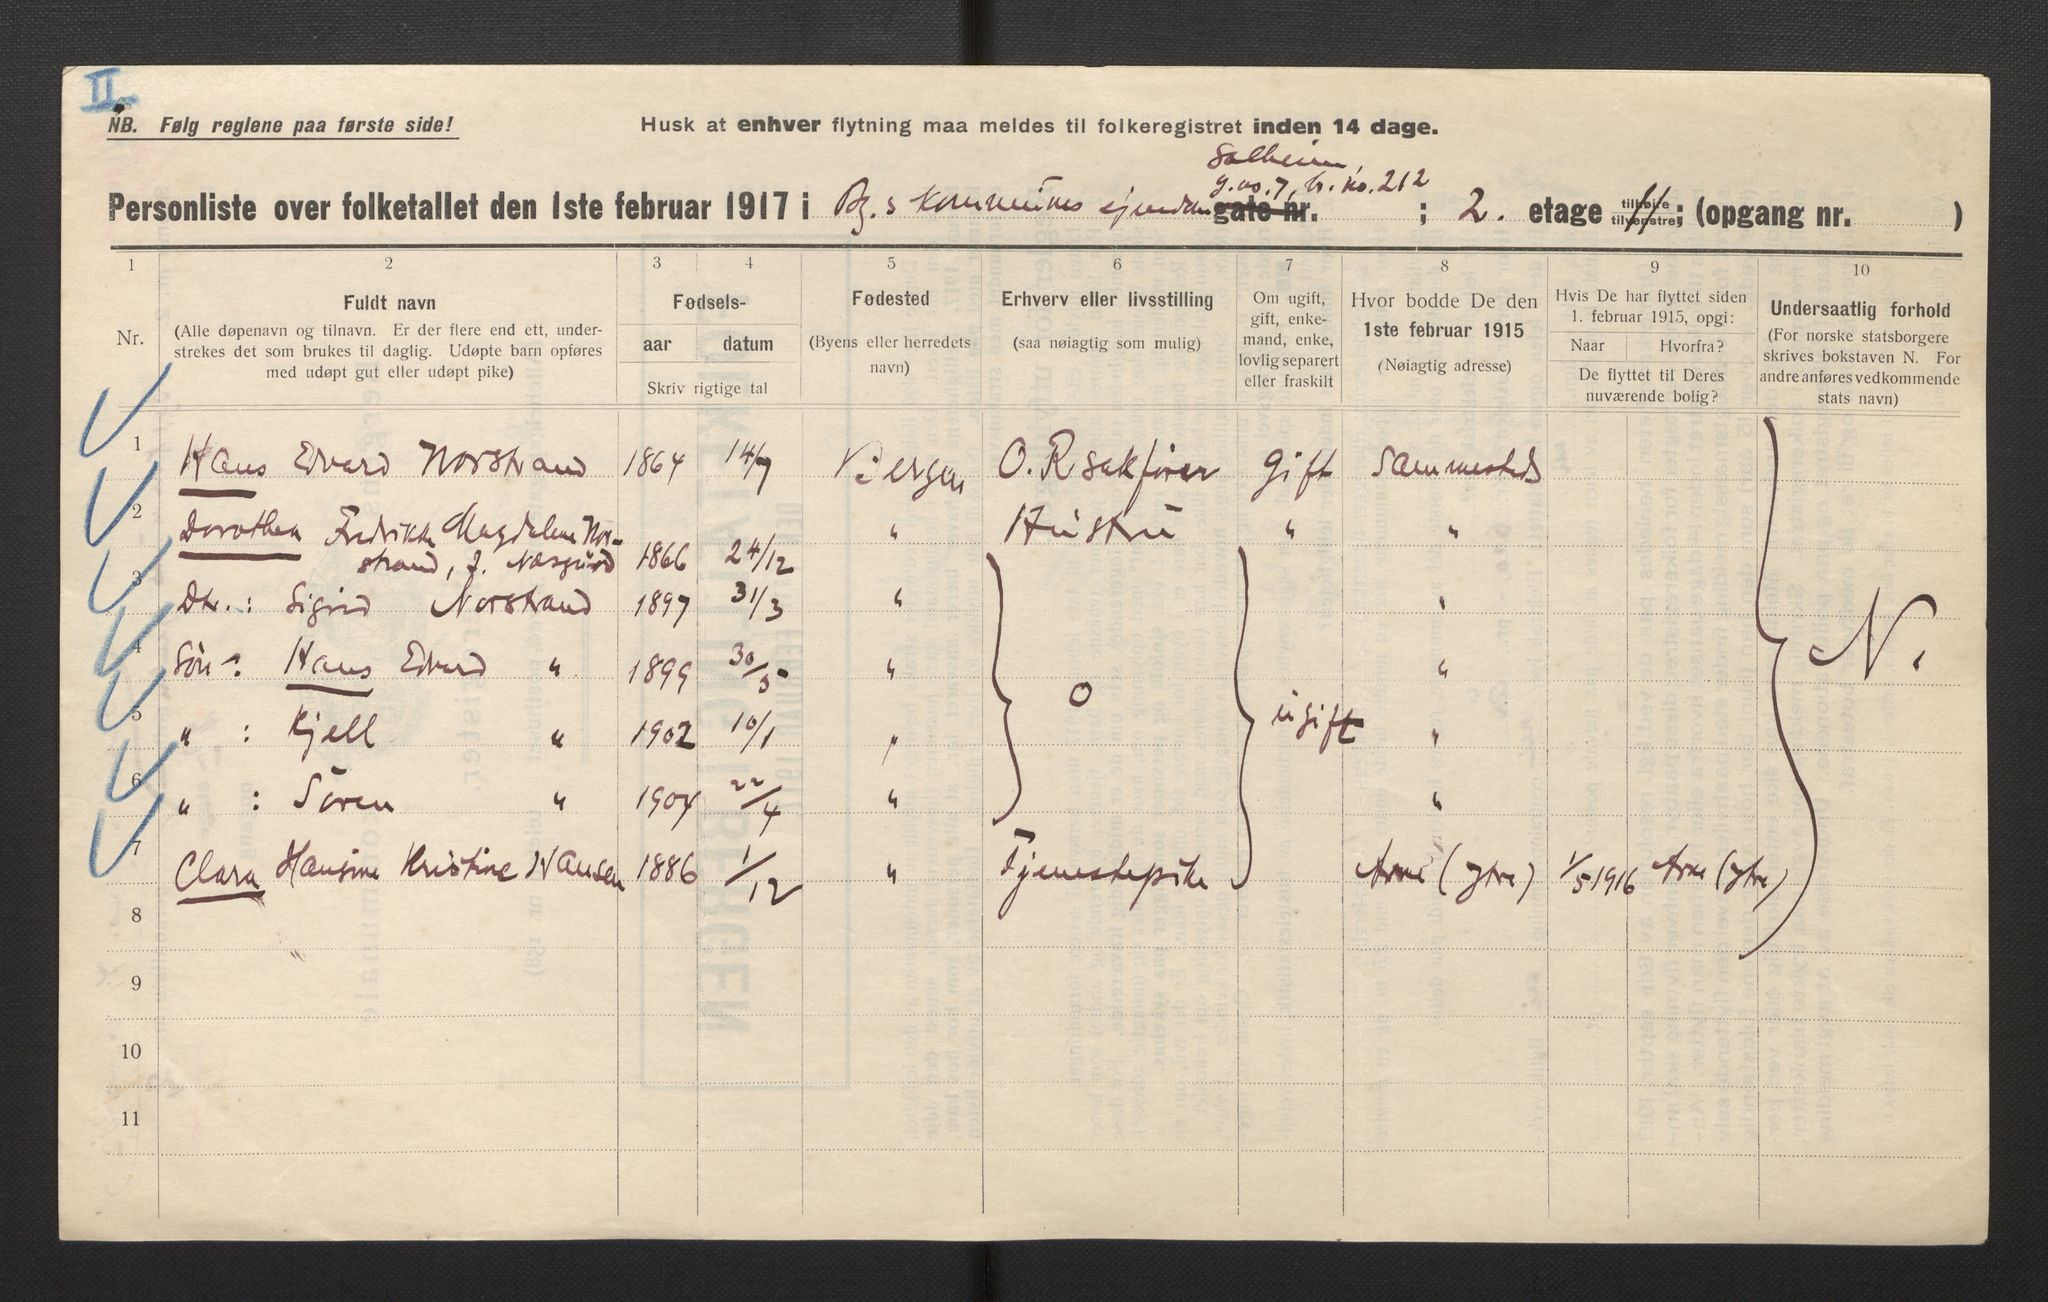 II.
NB. Følg reglene paa første side!
Husk at enhver flytning maa meldes til folkeregistret inden 14 dage.
Solheim,
g.no. 7, br. no. 212
Personliste over folketallet den 1ste februar 1917 i Bg.s kommunes eiendom gate nr. ; 2. etage tilhøire tilvenstre; (opgang nr. )
1 2 3 4 5 6 7 8 9 10
Nr.
Fuldt navn
(Alle døpenavn og tilnavn. Er der flere end ett, under-
strekes det som brukes til daglig. Udøpte barn opføres
med udøpt gut eller udøpt pike)
Fødsels-
aar datum
Skriv rigtige tal
Fødested
(Byens eller herredets
navn)
Erhverv eller livsstilling
(saa nøiagtig som mulig)
Om ugift,
gift, enke-
mand, enke,
lovlig separert
eller fraskilt
Hvor bodde De den
1ste februar 1915
(Nøiagtig adresse)
Hvis De har flyttet siden
1. februar 1915, opgi:
Naar Hvorfra?
De flyttet til Deres
nuværende bolig?
Undersaatlig forhold
(For norske statsborgere
skrives bokstaven N. For
andre anføres vedkommende
stats navn)
1 Hans Edvard Norstrand 1864 14/7 Bergen O.R sakfører gift Sammesteds
2 Dorothea Fredrikke Magdalene Nor-
strand, f. 1866 24/12 " Hustru " "
3 Dtr.: Sigrid Norstrand 1897 31/3 " "
4 Søn: Hans Edvard " 1899 30/5 " "
5 " : Kjell " 1902 10/1 " "
6 " : Sören " 1904 22/4 " "
O ugift N.
7 Clara Hansine Kristine Hansen 1886 1/12 " Tjenestepike Arne (ytre) 1/5 1916 Arne (ytre)
8
9
10
11